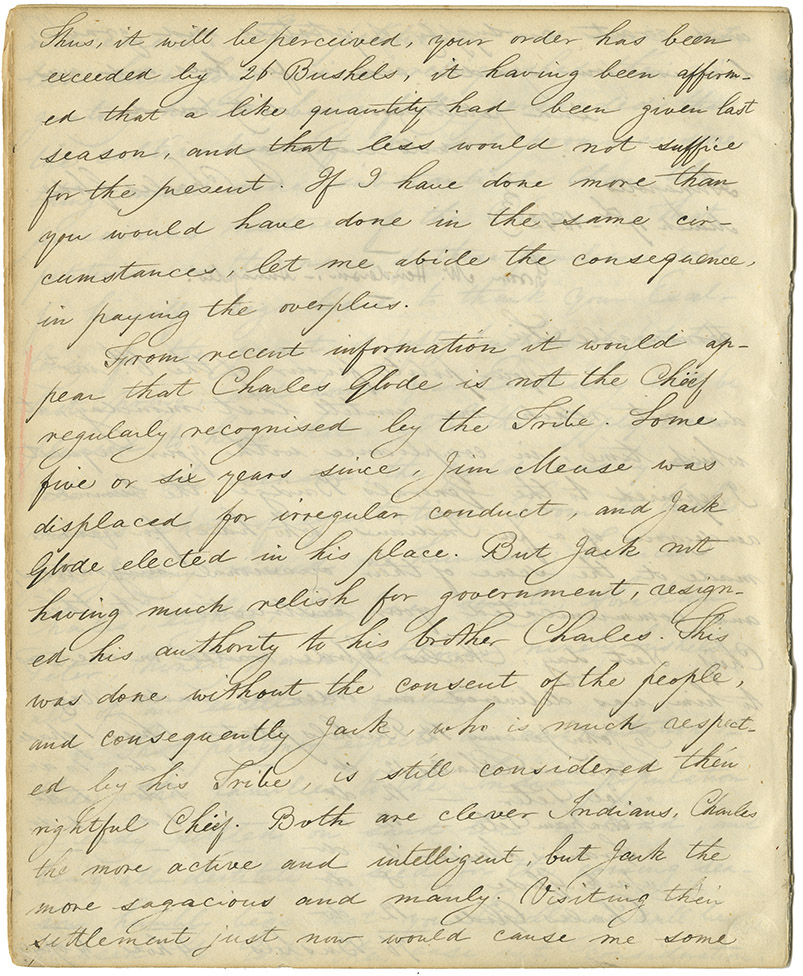 Thus, it will be perceived, your order has been
exceeded by 26 Bushels, it having been affirm-
ed that a like quantity had been given last
season, and that less would not suffice
for the present. If I have done more than
you would have done in the same cir-
cumstances, let me abide the consequence,
in paying the overplus.
From recent information it would ap-
pear that Charles Glode is not the Cheif
regularly recognised by the Tribe. Some
five or six years since, Jim Meuse was
displaced for irregular conduct, and Jack
Glode elected in his place. But Jack not
having much relish for government, resign-
ed his authority to his brother Charles. This
was done without the consent of the people,
and consequently Jack, who is much respect-
ed by his Tribe, is still considered their
rightful Cheif. Both are clever Indians, Charles
the more active and intelligent, but Jack the
more sagacious and manly. Visiting their
settlement just now would cause me some